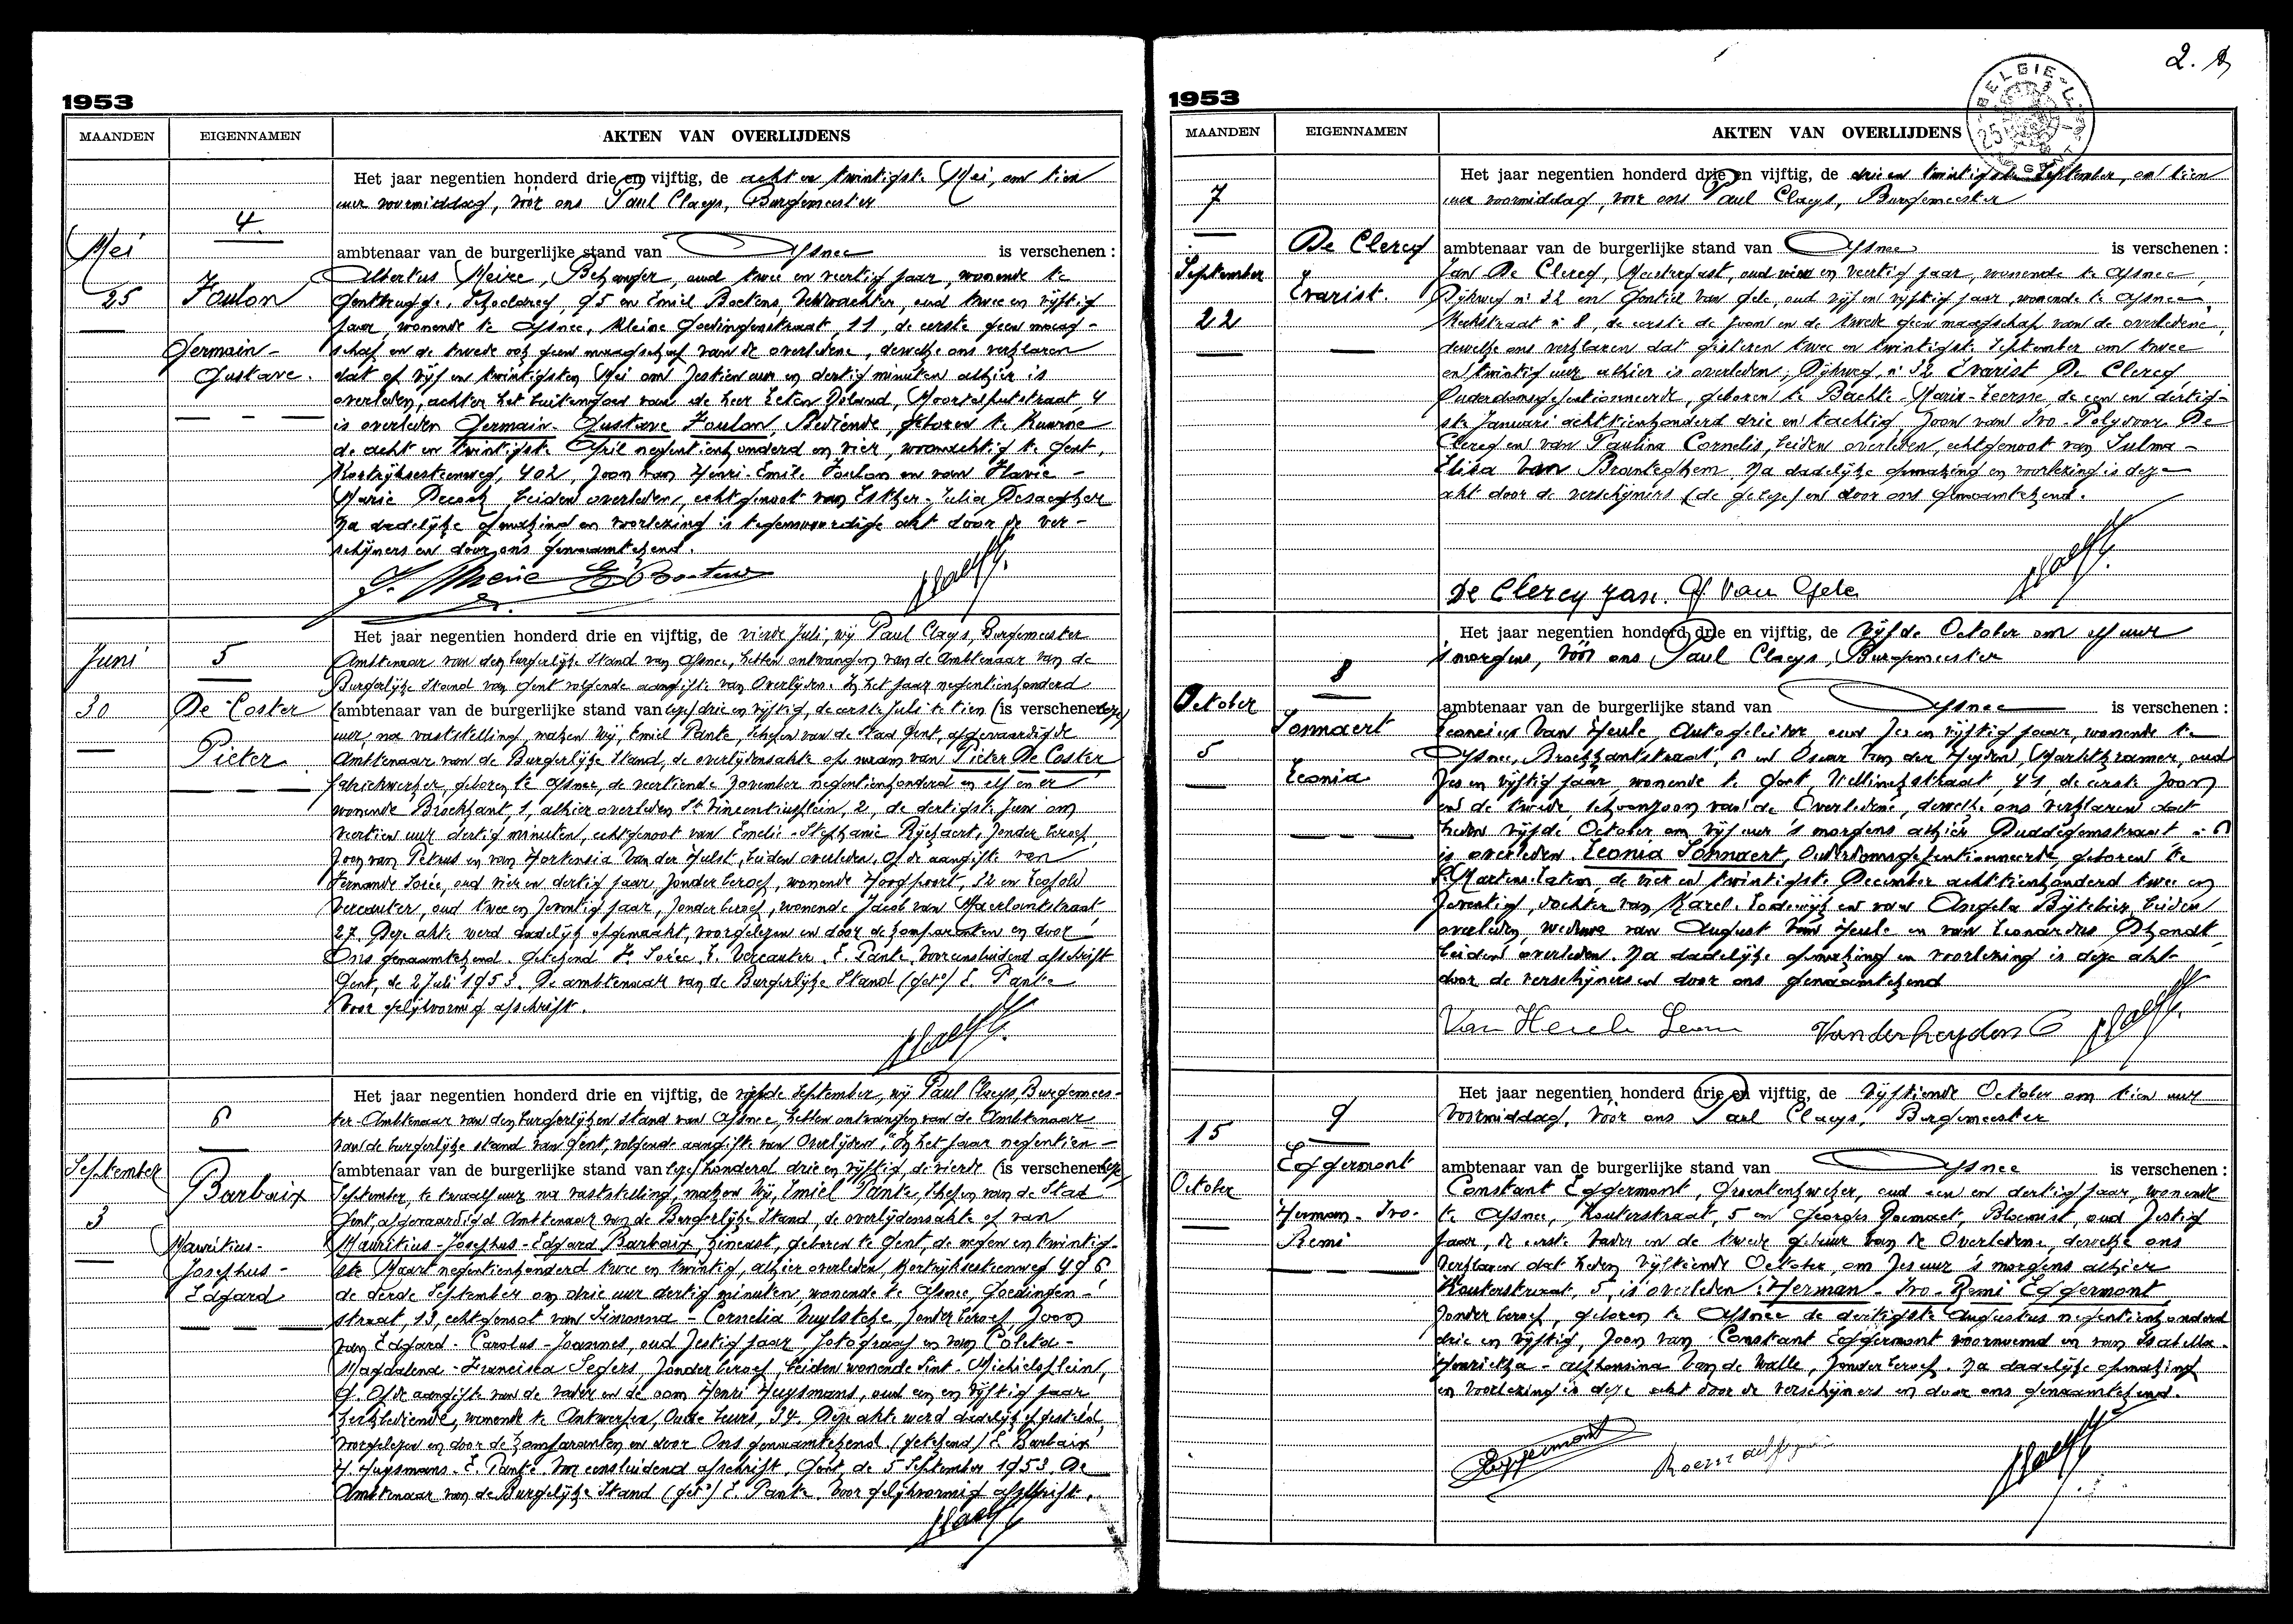 1953
MAANDEN EIGENNAMEN AKTEN VAN OVERLIJDENS
Het jaar negentien honderd drie en vijftig, de acht en twintigste Mei, om tien
uur voormiddag, vóór ons Paul Claeys, Burgemeester
4.
Mei
ambtenaar van de burgerlijke stand van Afsnee is verschenen :
Albertus Meire, Behanger, oud twee en veertig jaar, wonende te
25 Foulon
Gentbrugge, 95 en Emiel Boetens, Veldwachter, oud twee en vijftig
jaar, wonende te Afsnee, Kleine Goedingenstraat, 11, de eerste geen maag-
Germain-
schap en de tweede ook geen maagschap van de overledene, dewelke ons verklaren
Gustave.
dat op vijf en twintigsten Mei om zestien uur en dertig minuten alhier is
overleden, achter het buitengoed van de heer Leton Roland, Moortelputstraat, 4
is overleden Germain-Gustave Foulon, Bediende, geboren te Kuurne
de acht en twintigste April negentienhonderd en vier, woonachtig te Gent,
Kortrijksesteenweg, 402, zoon van Henri-Emile Foulon en van Flavie-
Marie beiden overleden, echtgenoot van Esther-Julia Desaegher
Na dadelijke opmaking en voorlezing is tegenwoordige akt door de ver-
schijners en door ons genaamtekend.
Het jaar negentien honderd drie en vijftig, de vierde Juli, wij Paul Claeys, Burgemeester
Juni 5
Ambtenaar van den burgerlijke Stand van Afsnee, hebben ontvangen van de Ambtenaar van de
Burgerlijke Stand van Gent volgende aangifte van Overlijden. In het jaar negentienhonderd
30 De Coster
(ambtenaar van de burgerlijke stand van lees) drie en vijftig, de eerste Juli te tien (is verschenen lees)
uur, na vaststelling, maken wij Emiel Pante, Schepen van de Stad Gent, afgevaardigde
Pieter
Ambtenaar van de Burgerlijke Stand, de overlijdensakte op van Pieter De Coster
fabriekwerker, geboren te Afsnee, de veertiende November negentienhonderd en elf en er
wonende Broekkant, 1, alhier overleden St Vincentiusplein, 2, de dertigste Juni om
veertien uur dertig minuten, echtgenoot van Emelie-Stephanie Rijckaert, zonder beroep,
zoon van Petrus en van Hortensia Van der Hulst, beiden overleden. Op de aangifte van
Fernande Sorée, oud vier en dertig jaar, zonder beroep, wonende Hoogpoort, 32 en Leopold
Vercauter, oud twee en zeventig jaar, zonder beroep, wonende Jacob van Maerlantstraat,
27. Deze akte werd dadelijk opgemaakt, voorgelezen en door de komparanten en door
Ons genaamtekend. Getekend F. Sorée, L. Vercauter, E. Pante. Voor eensluidend afschrift
Gent, de 2 Juli 1953. De ambtenaar van de Burgerlijke Stand (get.) E. Pante
Voor gelijkvormig afschrift.
Het jaar negentien honderd drie en vijftig, de vijfde September, wij Paul Claeys, Burgemees-
6
ter-Ambtenaar van den burgerlijken stand van Afsnee, hebben ontvangen van de Ambtenaar
van de burgerlijke stand van Gent, volgende aangifte van Overlijden, "In het jaar negentien-
September
(ambtenaar van de burgerlijke stand van lees) honderd drie en vijftig, de vierde (is verschenen lees)
Barbaix
September, te twaalf uur na vaststelling, maken wij, Emiel Pante, Schepen van de Stad
3
Gent, afgevaardigd Ambtenaar van de Burgerlijke Stand, de overlijdensakte op van
Mauritius-
Mauritius-Josephus-Edgard Barbaix, Cineast, geboren te Gent, de negen en twintig-
Josephus-
ste Maart negentienhonderd twee en twintig, alhier overleden, Kortrijksesteenweg 496
Edgard
de derde September om drie uur dertig minuten wonende te Afsnee, Goedingen-
straat, 13, echtgenoot van Simonna-Cornelia Vuylsteke, zonder beroep, zoon
van Edgard-Carolus-Joannes, oud zestig jaar fotograaf en van Coleta-
Magdalena-Franciska Segers, zonder beroep, beiden wonende Sint-Michielsplein,
Op de aangifte van de vader en de oom Henri Huysmans, oud een en vijftig jaar
wonende te Antwerpen, Oude Beurs, 34. Deze akte werd dadelijk opgesteld,
voorgelezen en door de komparanten en door Ons genaamtekend. (Getekend) E. Barbaix
H. Huysmans. E. Pante. Voor eensluidend afschrift, Gent, de 5 September 1953. De
Ambtenaar van de Burgerlijke Stand (get.) E. Pante. Voor gelijkvormig afschrift.
2.
1953
MAANDEN EIGENNAMEN AKTEN VAN OVERLIJDENS
Het jaar negentien honderd drie en vijftig, de drie en twintigste September, om tien
7
uur voormiddag, voor ons Paul Claeys, Burgemeester
De Clercq
ambtenaar van de burgerlijke stand van Afsnee is verschenen :
September
Jan De Clercq, Meestergast, oud vier en veertig jaar, wonende te Afsnee,
Evarist.
Dijkweg n° 32 en Gentiel Van Gele, oud vijf en vijftig jaar, wonende te Afsnee,
22
Kerkstraat n° 8, de eerste de zoon en de tweede geen maagschap van de overledene,
dewelke ons verklaren dat gisteren twee en twintigste September om twee
en twintig uur alhier is overleden, Dijkweg, n° 32 Evarist De Clercq,
Ouderdomsgepentionneerde, geboren te Bachte-Maria-Leerne, de een en dertig-
ste Januari achttienhonderd drie en tachtig, zoon van Ivo-Polydoor De
Clercq en van Paulina Cornelis, beiden overleden, echtgenoot van Sulma-
Elisa Van Branteghem. Na dadelijke opmaking en voorlezing is deze
akt door de verschijners (de gelezen door ons genaamtekend.
De Clercq Jan. G. Van Gele
Het jaar negentien honderd drie en vijftig, de vijfde October om elf uur
's morgens, vóór ons Paul Claeys, Burgemeester
8
October
ambtenaar van de burgerlijke stand van Afsnee is verschenen :
Sonnaert
Leoncius Van Heule, Autogeleider, oud zes en vijftig jaar, wonende te
5
Afsnee, Broekkantstraat, 6 en Oscar Van der Heyden, Marktkramer, oud
Leonia
zes en vijftig jaar, wonende te Gent, 41, de eerste zoon
en de tweede, schoonzoon van de Overledene, dewelke ons verklaren dat
heden vijfde October om vijf uur 's morgens alhier Duddegemstraat n° 6
is overleden Leonia Sonnaert, Ouderdomsgepentionneerde, geboren te
St Martens-Latem, de vier en twintigste December achttienhonderd twee en
zeventig, dochter van Karel-Lodewijk en van Angela Bijtebier, beiden
overleden, weduwe van August Van Heule en van Leonardus Dhondt,
beiden overleden. Na dadelijke opmaking en voorlezing is deze akt
door de verschijners en door ons genaamtekend
Van Heule Leon Vanderheyden O
Het jaar negentien honderd drie en vijftig, de vijftiende October om tien uur
9
voormiddag, vóór ons Paul Claeys, Burgemeester
15
Eggermont
ambtenaar van de burgerlijke stand van Afsnee is verschenen :
October
Constant Eggermont, Groentenkweker, oud een en dertig jaar, wonende
Herman-Ivo-
te Afsnee, Kouterstraat, 5 en Georges Roemaet, Bloemist, oud zestig
Remi
jaar, de eerste vader en de tweede gebuur van de Overledene, dewelke ons
verklaren dat heden vijftiende October, om zes uur 's morgens alhier
Kouterstraat, 5, is overleden : Herman-Ivo-Remi Eggermont,
zonder beroep, geboren te Afsnee de dertigste Augustus negentienhonderd
drie en vijftig, zoon van Constant Eggermont voornoemd en van Isabella-
Henrietta-Alphonsina Van de Walle, zonder beroep. Na dadelijke opmaking
en voorlezing is deze akt door de verschijners en door ons genaamtekend.
Eggermont